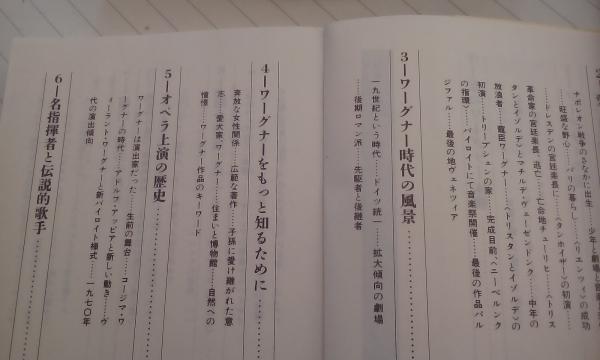 ナポレオン戦争のさなかに出生……少年と劇場と音
……旺盛な野心……パリの暮らし……《リエンツィ》の成功
……ドレスデンの宮廷楽長に……《タンホイザー》の初演……
革命家の宮廷楽長、逃亡……亡命地チューリヒ……《トリス
タンとイゾルデ》とマチルデ・ヴェーゼンドンク……中年の
放浪者……寵臣ワーグナー……《トリスタンとイゾルデ》の
初演……トリープシェンの家……完成目前、《ニーベルンク
の指環》……バイロイトにて音楽祭開催……最後の作品パル
ジファル……最後の地ヴェネツィア
3―ワーグナー時代の風景…………
一九世紀という時代……ドイツ統一……拡大傾向の劇場
……後期ロマン派……先駆者と後継者
4―ワーグナーをもっと知るために…………
奔放な女性関係……広範な著作……子孫に受け継がれた意
志……愛犬家・ワーグナー……住まいと博物館……自然への
憧憬……ワーグナー作品のキーワード
5―オペラ上演の歴史…………
ワーグナーは演出家だった……生前の舞台……コージマ・ワ
ーグナーの時代……アドルフ・アッピアと新しい動き……ヴ
ィーラント・ワーグナーと新バイロイト様式……一九七〇年
代の演出傾向
6―名指揮者と伝説的歌手…………